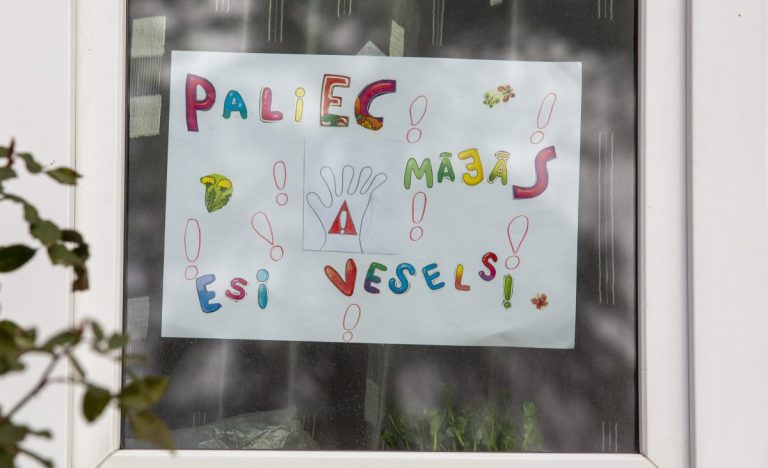 PALIEC
MĀJĀS
ESI VESELS!